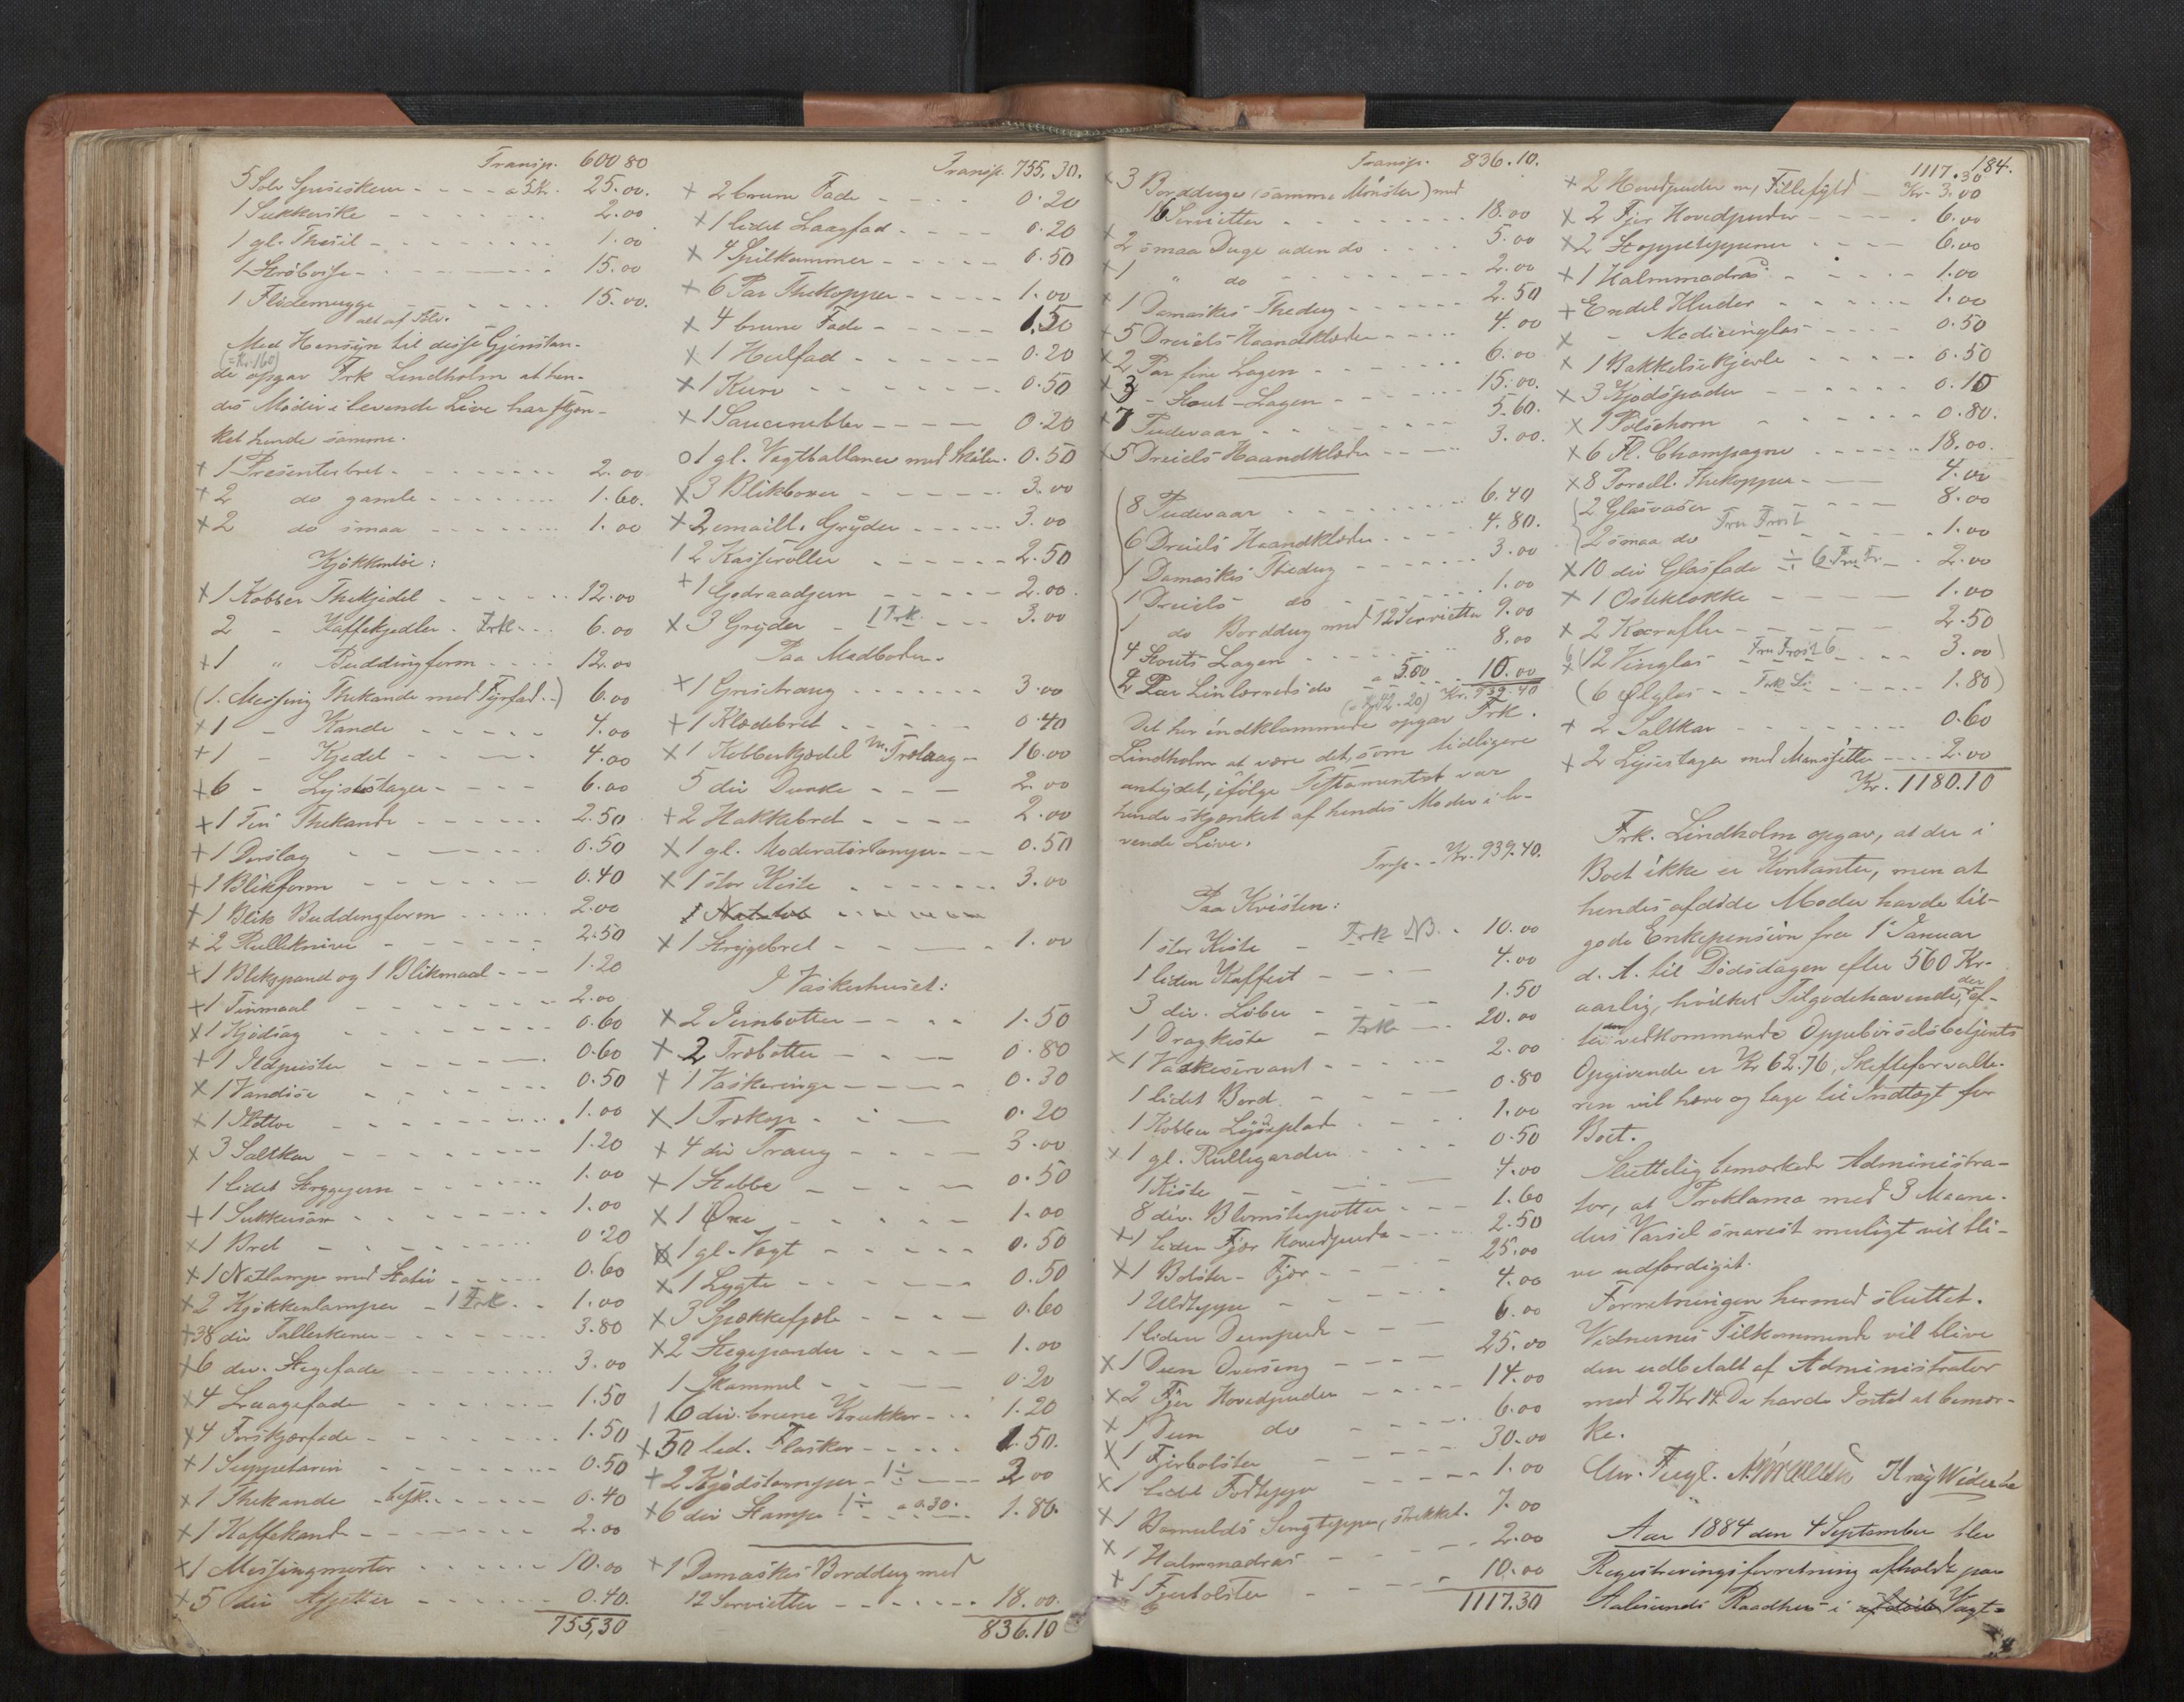 Transp. 600 80
5 Sølv Spiseskeer - - - - a 5 Kr. 25.00.
1 Sukkerske - - - - 2.00
1 gl. Thesil - - - - 1.00
1 Strøbøsse - - - - 15.00
1 Flødemugge - - - - 15.00.
alt af Sølv.
Med Hensyn til disse Gjenstan-
(= Kr. 160)
de opgav Frk Lindholm at hen-
des Moder i levende Live har skjæn-
ket hende samme.
+ 1 Presenterbret - - - - 2.00
+ 2 do gamle - - - - 1.60.
+ 2 do smaa - - - - 1.00
Kjøkkentøi:
x 1 Kobber Thekjedel - - - - 12.00
2 - Kaffekjedler - Frk - - 6.00
+ 1 " Buddingform - - - - 12.00
(1. Messing Thekande med Fyrfad. -) 6.00
x 1 - Kande - - - - 4.00
+ 1 - Kjedel - - - - 4.00
+ 6 - Lysestager - - - - 6.00
+ 1 Tin Thekande - - - - 2.50
+ 1 Dørslag - - - - 0.50
+ 1 Blikform - - - - 0.40
+ 1 Blik Buddingform - - - - 2.00
+ 2 Rulleknive - - - - 2.50
+ 1 Blikspand og 1 Blikmaal - - - 1.20
+ 1 Tinmaal - - - - 2.00
x 1 Kjødsag - - - - 0.60
+ 1 Ildpuster - - - - 0.60
x 1 Vandøse - - - - 0.50
x 1 - - - - 1.00
x 3 Saltkar - - - - 1.20
1 lidet Strygejern - - - - 1.00
+ 1 Sukkersax - - - - 1.00
x 1 Bret - - - - 0.20
x 1 Natlampe med Stativ - - - - 0.60
x 2 Kjøkkenlamper - 1 Frk - - 1.00
+ 38 div Tallerkener - - - - 3.80
x 6 div. Stegefade - - - - 3.00
x 4 Laagefade - - - - 1.50
x 4 Forskjærfade - - - - 1.50
x 1 Suppeterin - - - - 0.50
x 1 Thekande - besk. - - - - 0.40
x 1 Kaffekande - - - - 2.00
x 1 Messingmorter - - - - 10.00
x 5 div Asjetter - - - - 0.40.
755,30
Transp. 755.30.
+ 2 brune Fade - - - - 0.20
x 1 lidet Laagfad - - - - 0.20
x 4 Spilkummer - - - - 0.50
+ 6 Par Thekopper - - - - 1.00
x 4 brune Fade - - - - 1.50
x 1 Hulfad - - - - 0.20
x 1 Kurv - - - - 0.50
x 1 Saucenebbe - - - - 0.20
o 1 gl. Vegtballance med Skåler. 0.50
x 3 Blikboxer - - - - 3.00
x 2 emaill. Gryder - - - - 3.00
1 2 Kasseroller - - - - 2.50
+ 1 Godraadjern - - - - 2.00
x 3 Gryder - 1 Frk - - - 3.00
Paa Madboden.
+ 1 Grisetraug - - - - 3.00
+ 1 Klædebret - - - - 0.40
x 1 Kobberkjedel m. Trælaag - 16.00
5 div Dunke - - - 2.00
+ 2 Hakkebret - - - - 2.00
x 1 gl. Moderatørlampe - - - 0.50
x 1 stor Kiste - - - - 3.00
x 1 Strygebret - - - - 1.00
I Vaskerhuset:
x 2 Jernbøtter - - - - 1.50
x 2 Træbøtter - - - - 0.80
+ 1 Vaskeringe - - - - 0.30
x 1 Trækop - - - - 0.20
+ 4 div Traug - - - - 3.00
x 1 Stabbe - - - - 0.50
x 1 Øxe - - - - 1.00
x 1 gl. Vægt - - - - 0.50
x 1 Lygte - - - - 0.50
x 3 Spækkefjæle - - - - 0.60
x 2 Stegepander - - - - 1.00
1 Skammel - - - - 0.20
1 6 div. brune Krukker - - - 1.20
x 50 led. Flasker - - - - 1.50.
+ 2 Kjødstamper - 1 ÷ - - 2 00
x 6 div Stampe 1 ÷ a 0.30. 1.80.
+ 1 Damaskes Borddug med
12 Servietter - - - - 18.00.
836.10
Transp. 836.10.
x 3 Borddúge (samme Mønster) med
16 Servietter - - - - 18.00
x 2 smaa Duge uden do - - - - 5.00
x 1 " do - - - - 2.00
x 1 Damaskes Thedug - - - - 2.50
+ 5 Dreiels Haandklæder - - - - 4.00
x 2 Par fine Lagen - - - - 6.00
x 3 - Stout-Lagen - - - - 15.00.
x 7 Pudevaar - - - - 5.60.
x 5 Dreiels Haandklæder - - - - 3.00.
8 Pudevaar - - - - 6.40
6 Dreiels Haandklæder - - - - 4.80.
1 Damaskes Thedug - - - - 3.00
1 Dreiels do - - - - 1.00
1 do Borddug med 12 Servietter 9.00
4 Stouts Lagen - - - - 8.00
2 Par Linlerreds do a 5.00 - 10.00
(= Kr. 42.20) Kr. 939.40
Det her indklammede opgav Frk.
Lindholm at være det, som tidligere
antydet, ifølge Testamentet var
hende skjænket af hendes Moder i le-
vende Live.
Trsp. - Kr. 939.40.
Paa Kvisten:
1 stor Kiste - Frk NB. - 10.00
1 liden Kuffert - - - - 4.00
3 div. Løber - - - - 1.50
1 Dragkiste - Frk - - 20.00
x 1 Vaskeservant - - - - 2.00
1 lidet Bord - - - - 0.80
1 Kobber Lyseplade - - - - 1.00
x 1 gl. Rullegardin - - - - 0.50
1 Kiste - - - - 4.00
8 div. Blomsterpotter - - - 1.60
x 1 liden Fjær Hovedpude - - - - 2.50
x 1 Bolster - Fjær - - - - 25.00
1 Uldteppe - - - - 4.00
1 liden Dunpude - - - - 6.00
x 1 Dun Overseng - - - - 25.00
x 2 Fjær Hovedpuder - - - - 14.00
x 1 Dun do - - - - 6.00
x 1 Fjærbolster - - - - 30.00
x 1 lidet Fodteppe - - - - 1.00
x 1 Bomulds Sengteppe, strikket. 7.00
x 1 Halmmadras - - - - 2.00
x 1 Fjerbolster - - - - 10.00
1117.30
184.
1117.30
+ 2 Hovedpuder m/ Fillefyld - Kr. 3.00
x 2 Fjer Hovedpuder - - - - 6.00
x 2 Stoppetepper - - - - 6.00
+ 1 Halmmadras - - - - 1.00
+ Endel Kluder - - - - 1.00
x - Medicinglas - - - - 0.50
x 1 Bakkelsekjevle - - - - 0.50
x 3 Kjødspader - - - - 0.10
x 1 Pølsehorn - - - - 0.80.
x 6 Fl. Champagne - - - - 18.00.
x 8 Porcell. Thekopper - - - 4.00
2 Glasvaser - - - - 8.00
Fru Frost
2 smaa do - - - - 1.00
x 10 div Glasfade ÷ 6 Fru Fr - 2.00
x 1 Osteklokke - - - - 1.00
x 2 Karafler - - - - 2.50
x (12 Vinglas - Fru Frost 6 - - 3.00)
(6 Ølglas - - Frk Li - - - 1.80)
+ 2 Saltkar - - - - 0.60
x 2 Lysestager med Manschetter - - - - 2.00
Kr. 1180.10
Frk. Lindholm opgav, at der i
Boet ikke er Kontanter, men at
hendes afdøde Moder havde til-
gode Enkepension fra 1ste Januar
d. A. til Dødsdagen efter 560 Kr.
aarlig, hvilket Tilgodehavende, der ef-
ter vedkommende Oppebørselsbetjents
Opgivende er Kr 62.76, Skifteforvalte-
ren vil hæve og tage til Indtægt for
Boet.
Sluttelig bemærkede Administra-
tor, at Proklama med 3 Maane-
ders Varsel snarest muligt vil bli-
ve udfærdiget.
Forretningen hermed sluttet.
Vidnernes Tilkommende vil blive
dem udbetalt af Administrator
med 2 Kr 14. De havde Intet at bemær-
ke.
Chr. Fugl.
Aar 1884 den 4 September blev
Registreringsforretning afholdt paa
Aalesunds Raadhus i afdøde Vægt-